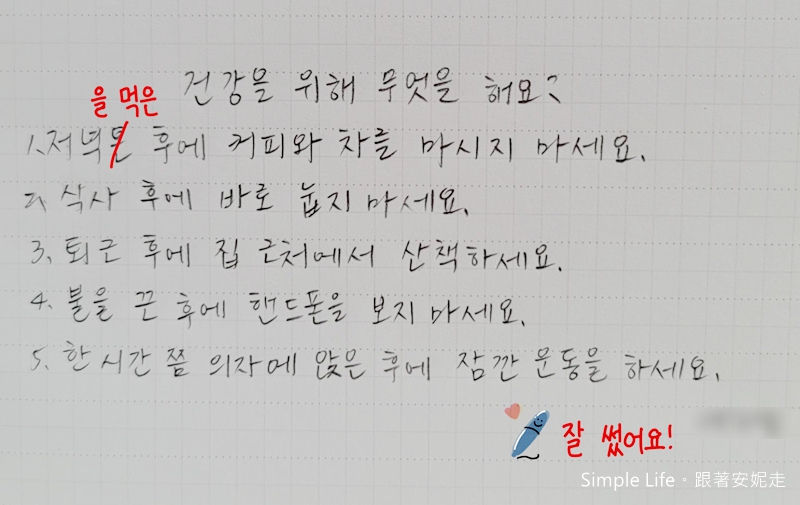 건강을 위해 무엇을 해요?
을 먹은
1. 저녁은 후에 커피와 차를 마시지 마세요.
2. 식사 후에 바로 눕지 마세요.
3. 퇴근 후에 집 근처에서 산책하세요.
4. 불을 끈 후에 핸드폰을 보지 마세요.
5. 한 시간 쯤 의자에 앉은 후에 잠깐 운동을 하세요.
잘 썼어요!
Simple Life。跟著安妮走